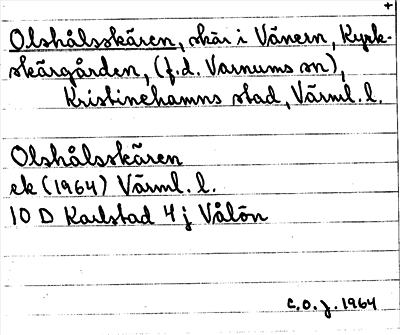 +
Olshålsskären, skär i Vänern, Kyrk-
skärgården, (f.d. Varnums sn),
Kristinehamns stad, Värml. l.
Olshålsskären
ek (1964) Värml. l.
10 D Karlstad 4 j Vålön
C.O.J. 1964